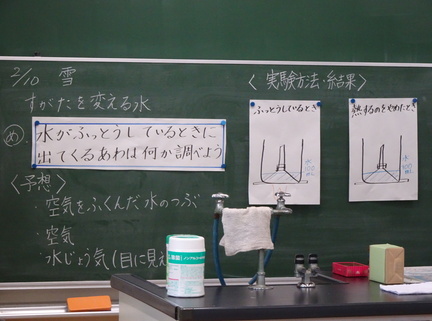 2/10 雪
すがたを変える水
め
水がふっとうしているときに
出てくるあわは何か調べよう
〈予想〉
・空気をふくんだ水のつぶ
・空気
・水じょう気(目に見え
〈実験方法・結果〉
ふっとうしているとき
熱するのをやめたとき